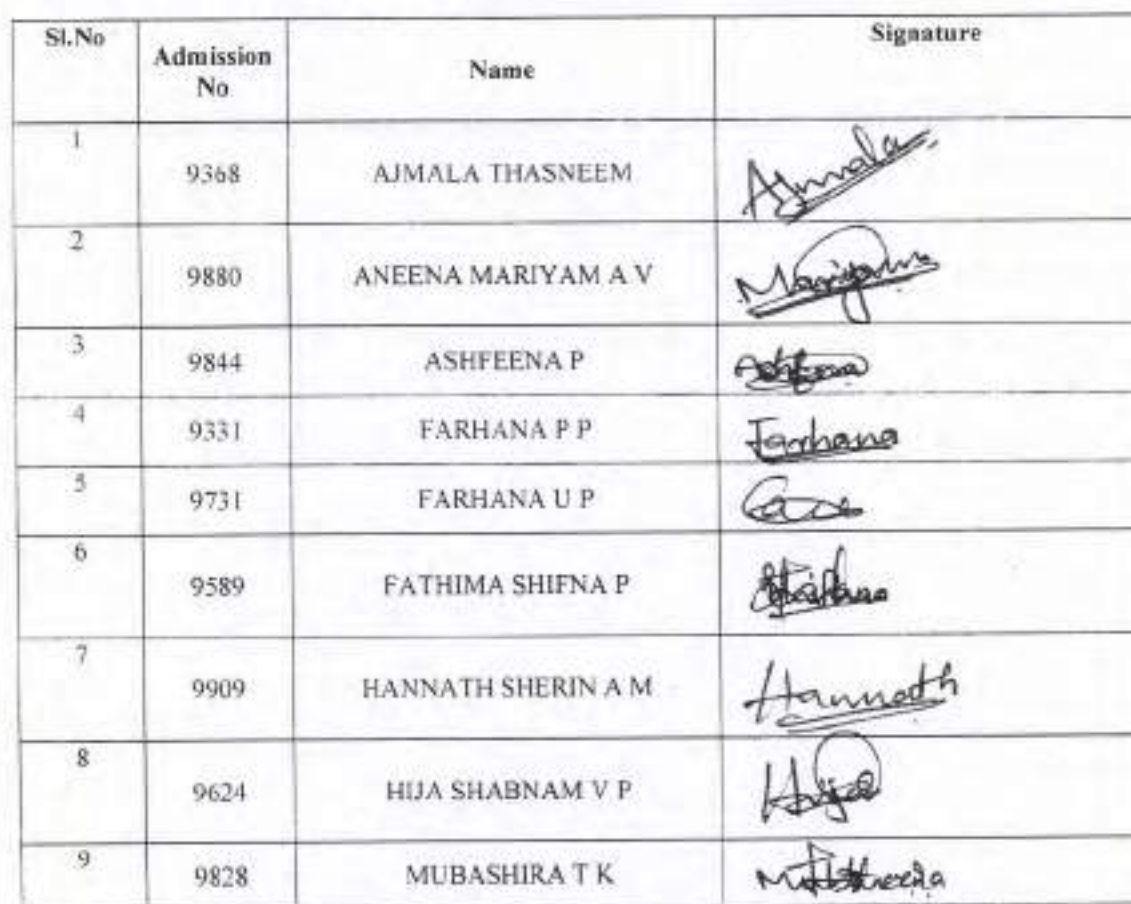 Sl.No Admission No Name Signature
1 9368 AJMALA THASNEEM Ajmala
2 9880 ANEENA MARIYAM A V Mariyam
3 9844 ASHFEENA P
4 9331 FARHANA P P Farhana
5 9731 FARHANA U P
6 9589 FATHIMA SHIFNA P
7 9909 HANNATH SHERIN A M Hannath
8 9624 HIJA SHABNAM V P Hija
9 9828 MUBASHIRA T K